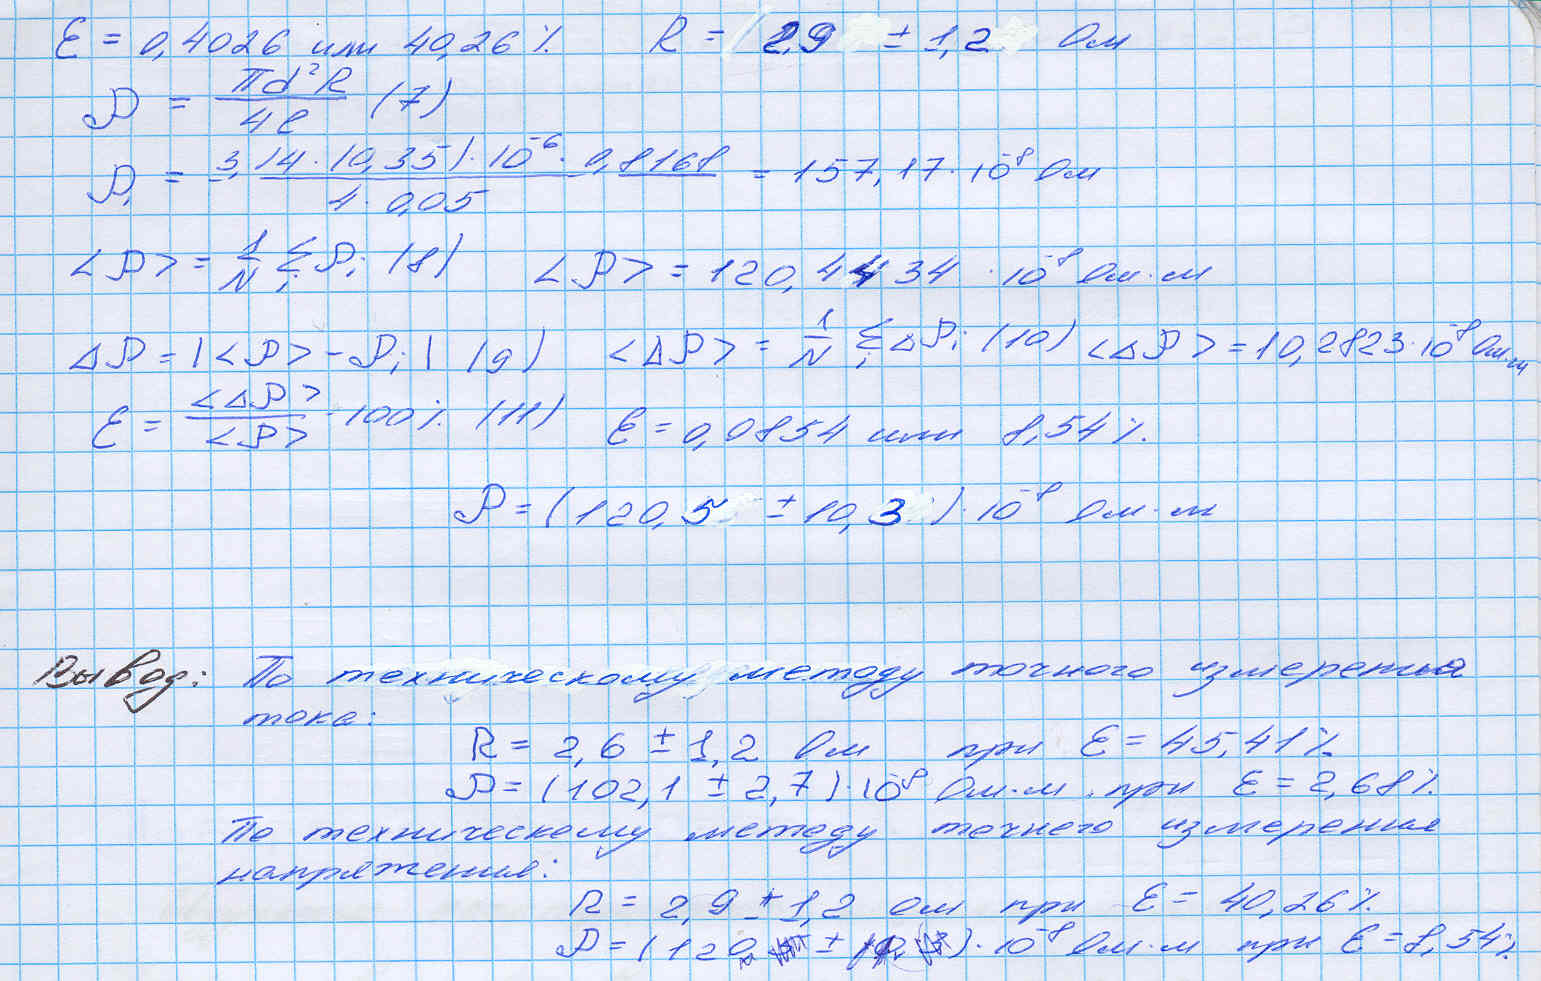 ε = 0,4026 или 40,26 % R = ( 2,9 ± 1,2 Ом
ρ = πd²R / 4l (7)
ρ₁ = 3,14 · (0,35) · 10⁻⁶ · 0,8168 / 4 · 0,05 = 157,17 · 10⁻⁸ Ом
<ρ> = 1/N Σᵢ ρᵢ (8) <ρ> = 120,4434 · 10⁻⁸ Ом · м
Δρ = |<ρ> - ρᵢ| (9) <Δρ> = 1/N Σᵢ Δρᵢ (10) <Δρ> = 10,2823 · 10⁻⁸ Ом·м
ε = <Δρ> / <ρ> · 100 % (11) ε = 0,0854 или 8,54 %.
ρ = (120,5 ± 10,3) · 10⁻⁸ Ом · м
Вывод: По техническому методу точного измерения
тока:
R = 2,6 ± 1,2 Ом при ε = 45,41 %
ρ = (102,1 ± 2,7) · 10⁻⁸ Ом·м при ε = 2,68 %.
По техническому методу точного измерения
напряжения:
R = 2,9 ± 1,2 Ом при ε = 40,26 %.
ρ = (120 ± ) · 10⁻⁸ Ом·м при ε = 8,54 %